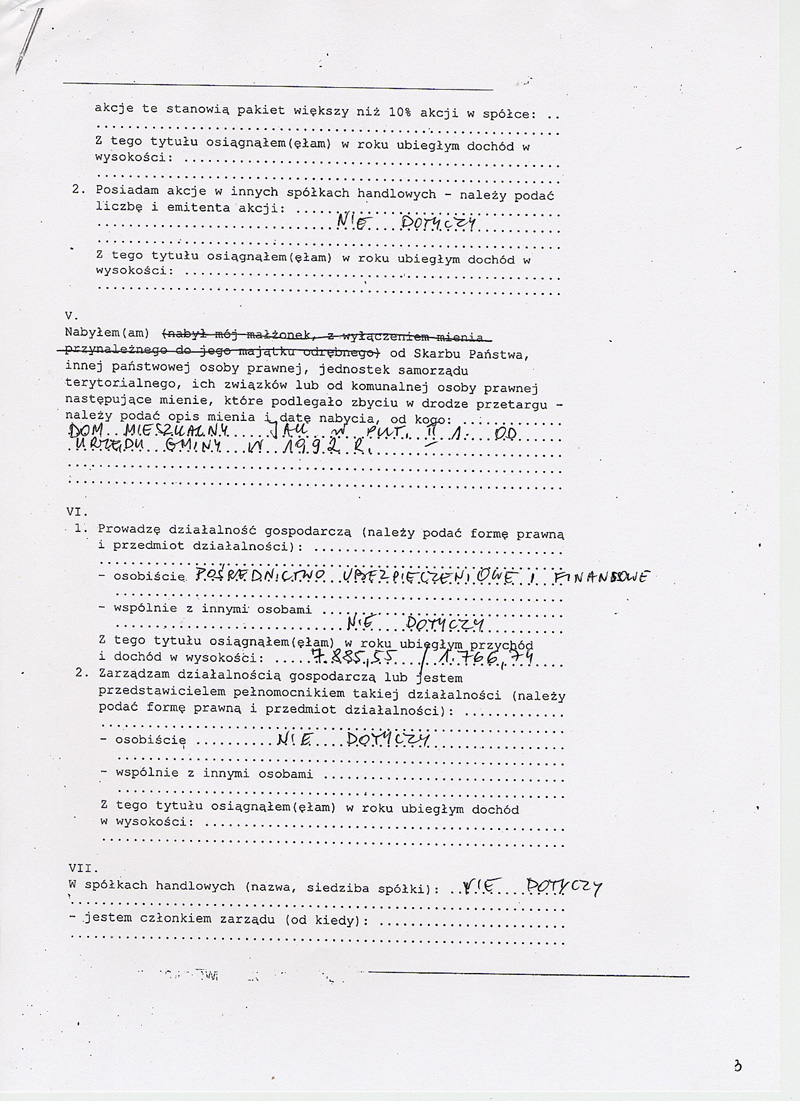 akcje te stanowią pakiet większy niż 10% akcji w spółce: ..
Z tego tytułu osiągnąłem(ęłam) w roku ubiegłym dochód w
wysokości: ..........
2. Posiadam akcje w innych spółkach handlowych - należy podać
liczbę i emitenta akcji: ..........
NIE DOTYCZY
Z tego tytułu osiągnąłem(ęłam) w roku ubiegłym dochód w
wysokości: ..........
V.
Nabyłem(am) (nabył mój małżonek, z wyłączeniem mienia
przynależnego do jego majątku odrębnego) od Skarbu Państwa,
innej państwowej osoby prawnej, jednostek samorządu
terytorialnego, ich związków lub od komunalnej osoby prawnej
następujące mienie, które podlegało zbyciu w drodze przetargu -
należy podać opis mienia i datę nabycia, od kogo: ..........
DOM MIESZKALNY JAK W PKT. II 1. OD
URZĘDU GMINY W 1992 R.
VI.
1. Prowadzę działalność gospodarczą (należy podać formę prawną
i przedmiot działalności): ..........
- osobiście POŚREDNICTWO UBEZPIECZENIOWE I FINANSOWE
- wspólnie z innymi osobami ..........
NIE DOTYCZY
Z tego tytułu osiągnąłem(ęłam) w roku ubiegłym przychód
i dochód w wysokości: ..... 7.885,55 / 1.766,74
2. Zarządzam działalnością gospodarczą lub jestem
przedstawicielem pełnomocnikiem takiej działalności (należy
podać formę prawną i przedmiot działalności): ..........
- osobiście .......... NIE DOTYCZY
- wspólnie z innymi osobami ..........
Z tego tytułu osiągnąłem(ęłam) w roku ubiegłym dochód
w wysokości: ..........
VII.
W spółkach handlowych (nazwa, siedziba spółki): .. NIE DOTYCZY
- jestem członkiem zarządu (od kiedy): ..........
3